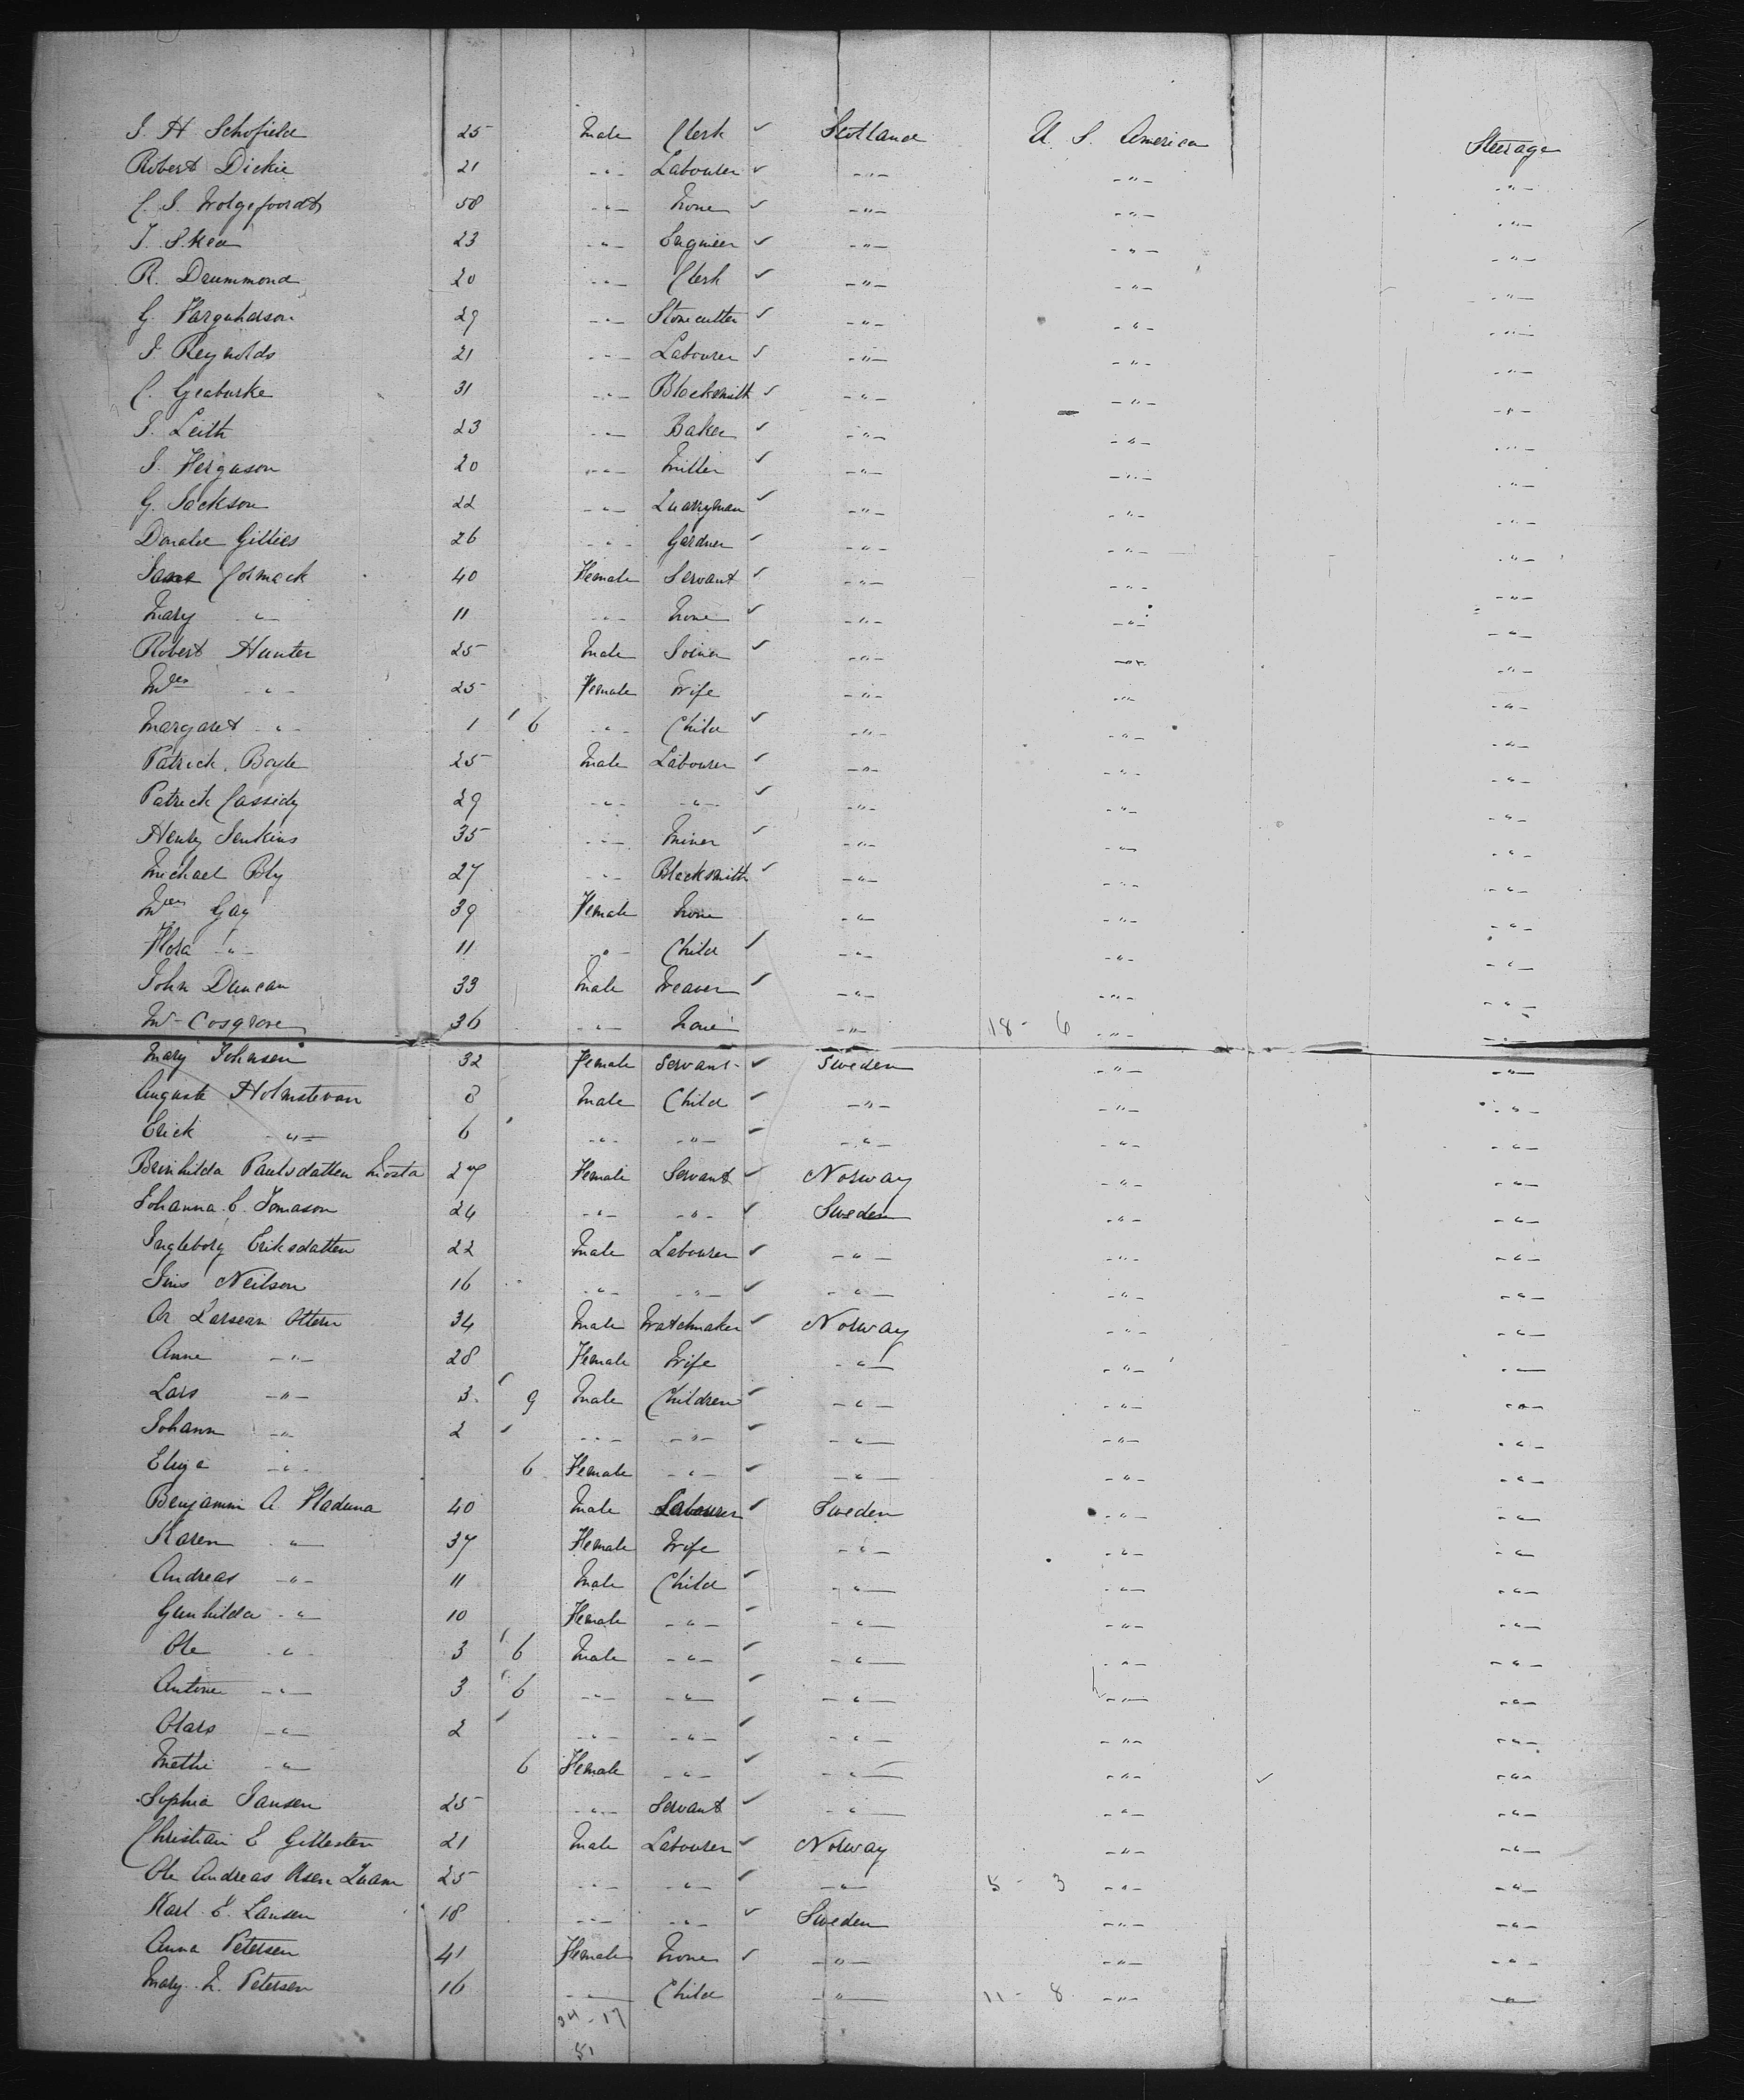 J. H. Schofield 25 Male Clerk ✓ Scotland U. S. America Steerage
Robert Dickie 21 -"- Labourer ✓ -"- -"- -"-
58 -"- None ✓ -"- -"- -"-
J. Skea 23 -"- Engineer ✓ -"- -"- -"-
R. Drummond 20 -"- Clerk ✓ -"- -"- -"-
G. Farquharson 29 -"- Stonecutter ✓ -"- -"- -"-
J. Reynolds 21 -"- Labourer ✓ -"- -"- -"-
C. 31 -"- Blacksmith ✓ -"- -"- -"-
J. Leith 23 -"- Baker ✓ -"- -"- -"-
J. Ferguson 20 -"- Miller ✓ -"- -"- -"-
G. Jackson 22 -"- Quarryman ✓ -"- -"- -"-
Donald Gillies 26 -"- Gardner ✓ -"- -"- -"-
Cormack 40 Female Servant ✓ -"- -"- -"-
Mary -"- 11 -"- None ✓ -"- -"- -"-
Robert Hunter 25 Male Joiner ✓ -"- -"- -"-
Mrs -"- 25 Female Wife -"- -"- -"-
Margaret -"- 1 6 -"- Child ✓ -"- -"- -"-
Patrick Boyle 25 Male Labourer ✓ -"- -"- -"-
Patrick Cassidy 29 -"- -"- ✓ -"- -"- -"-
Henry Jenkins 35 -"- Miner ✓ -"- -"- -"-
Michael Bly 27 -"- Blacksmith ✓ -"- -"- -"-
Mrs Gay 39 Female None -"- -"- -"-
Flora -"- 11 -"- Child ✓ -"- -"- -"-
John Duncan 33 Male Weaver ✓ -"- -"- -"-
Cosgrove 36 -"- None -"- 18 - 6 -"- -"-
Mary Johnsen 32 Female Servant ✓ Sweden -"- -"-
August 8 Male Child ✓ -"- -"- -"-
Erick -"- 6 -"- -"- ✓ -"- -"- -"-
Paulsdatten 27 Female Servant ✓ Norway -"- -"-
Johanna C. Jomason 24 -"- -"- ✓ Sweden -"- -"-
Ingleborg Eriksdatten 22 Male Labourer ✓ -"- -"- -"-
Jins Neilson 16 -"- -"- ✓ -"- -"- -"-
Larsean 34 Male Watchmaker ✓ Norway -"- -"-
Anne -"- 28 Female Wife -"- -"- -"-
Lars -"- 3 9 Male Children ✓ -"- -"- -"-
Johann -"- 2 -"- -"- ✓ -"- -"- -"-
-"- 6 Female -"- ✓ -"- -"- -"-
Benjamin A. Fladuna 40 Male Labourer ✓ Sweden -"- -"-
Karen -"- 37 Female Wife -"- -"- -"-
Andreas -"- 11 Male Child ✓ -"- -"- -"-
Gunhilda -"- 10 Female -"- ✓ -"- -"- -"-
Ole -"- 3 6 Male -"- ✓ -"- -"- -"-
Antone -"- 3 6 -"- -"- ✓ -"- -"- -"-
Olars -"- 2 -"- -"- ✓ -"- -"- -"-
Methe -"- 6 Female -"- ✓ -"- -"- ✓ -"-
Sophia Jansen 25 -"- Servant ✓ -"- -"- -"-
Christian E Gillesten 21 Male Labourer ✓ Norway -"- -"-
Ole Andreas 25 -"- -"- ✓ -"- 5 - 3 -"- -"-
Karl E. Lansen 18 -"- -"- ✓ Sweden -"- -"-
Anna Petersen 41 Female None ✓ -"- -"- -"-
Mary Petersen 16 -"- Child -"- 11 - 8 -"- -"-
34 - 17
51